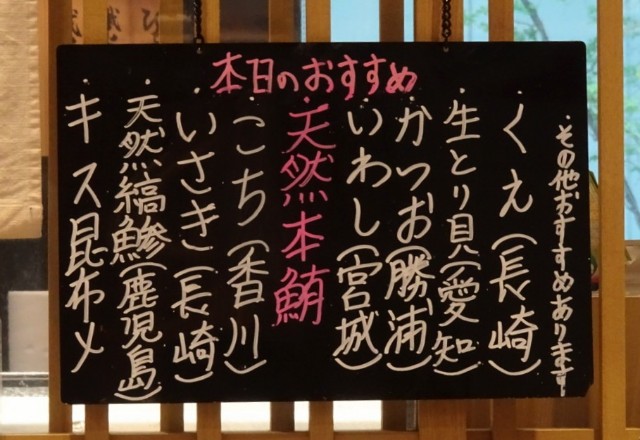 本日のおすすめ
・その他おすすめあります
・くえ(長崎)
・生とり貝(愛知)
・かつお(勝浦)
・いわし(宮城)
・天然本鮪
・こち(香川)
・いさき(長崎)
・天然縞鯵(鹿児島)
・キス昆布〆